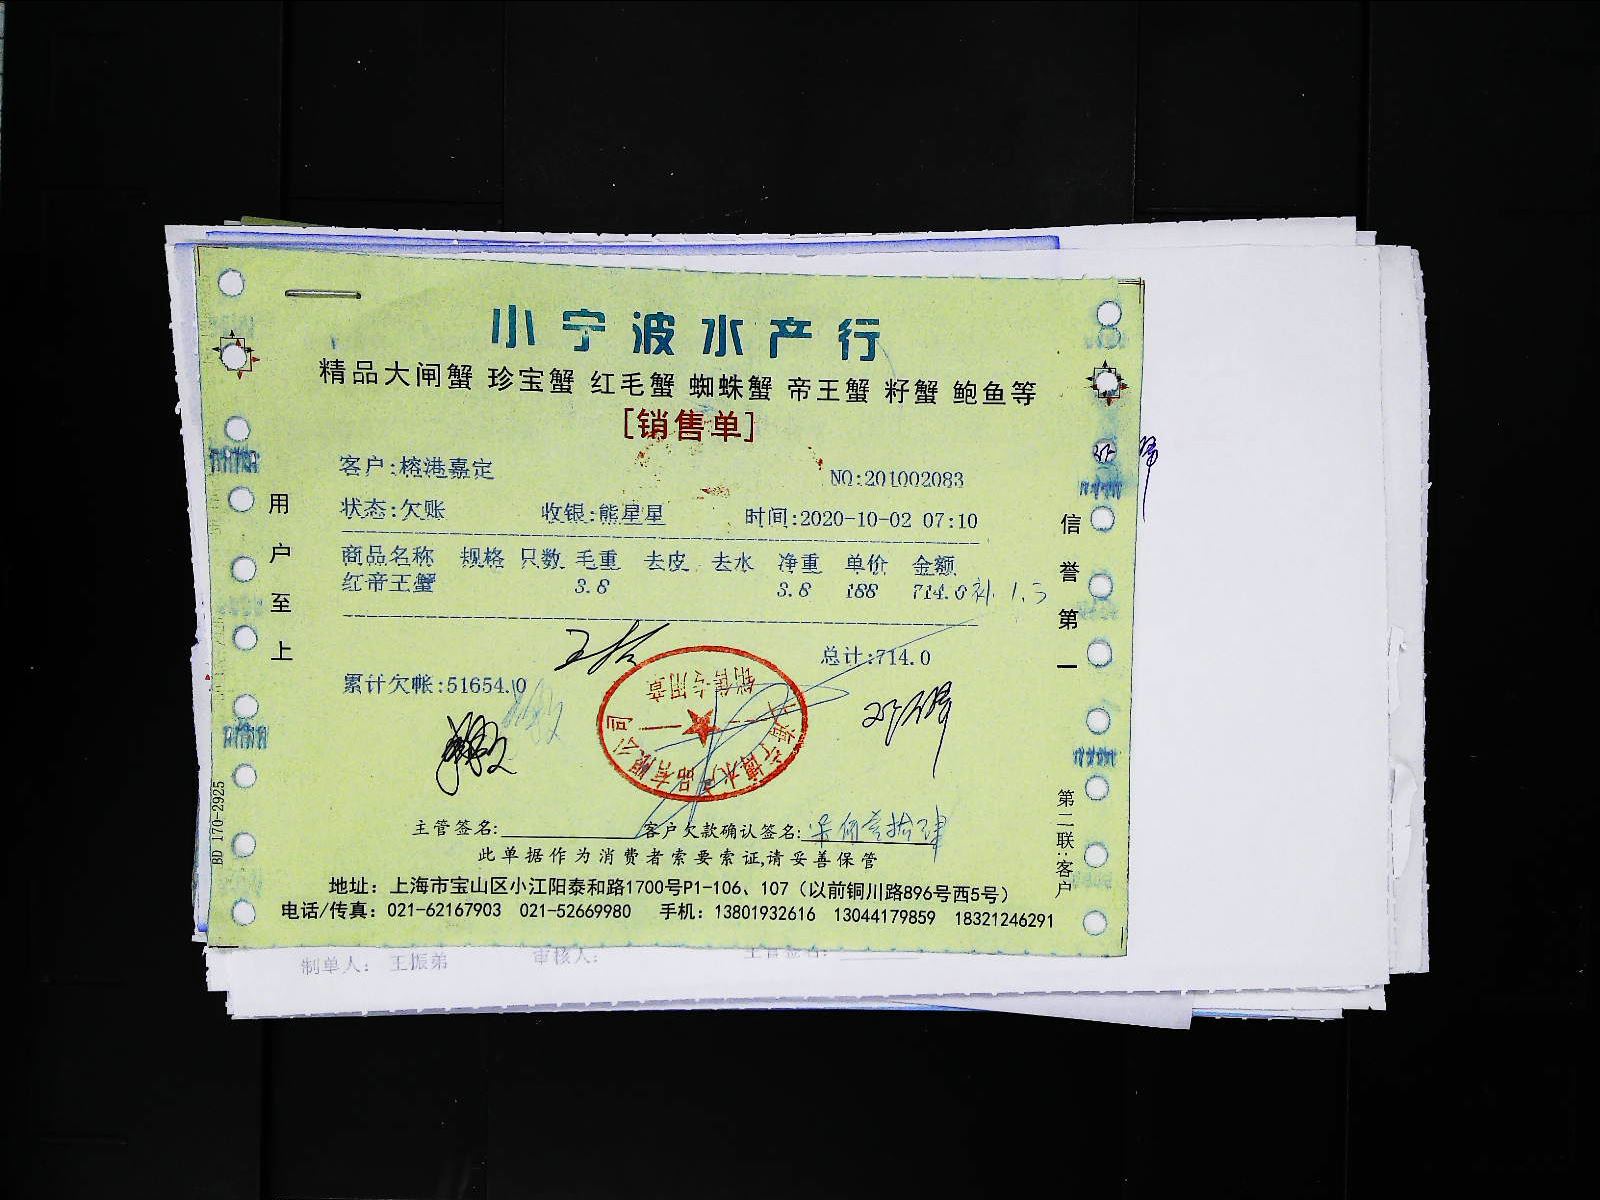 小宁波水产行
精品大闸蟹 珍宝蟹 红毛蟹 蜘蛛蟹 帝王蟹 籽蟹 鲍鱼等
[销售单]
客户:榕港嘉定 NO:201002083
状态:欠账 收银:熊星星 时间:2020-10-02 07:10
商品名称 规格 只数 毛重 去皮 去水 净重 单价 金额
红帝王蟹 3.8 3.8 188 714.0 补 1.3
总计:714.0
累计欠帐:51654.0
销售专用章
主管签名: 客户欠款确认签名:柒佰壹拾肆
此单据作为消费者索要索证,请妥善保管
地址：上海市宝山区小江阳泰和路1700号P1-106、107（以前铜川路896号西5号）
电话/传真：021-62167903 021-52669980 手机：13801932616 13044179859 18321246291
用户至上
信誉第一
第二联:客户
BD 170-2925
制单人： 王振弟 审核人： 主管签名：